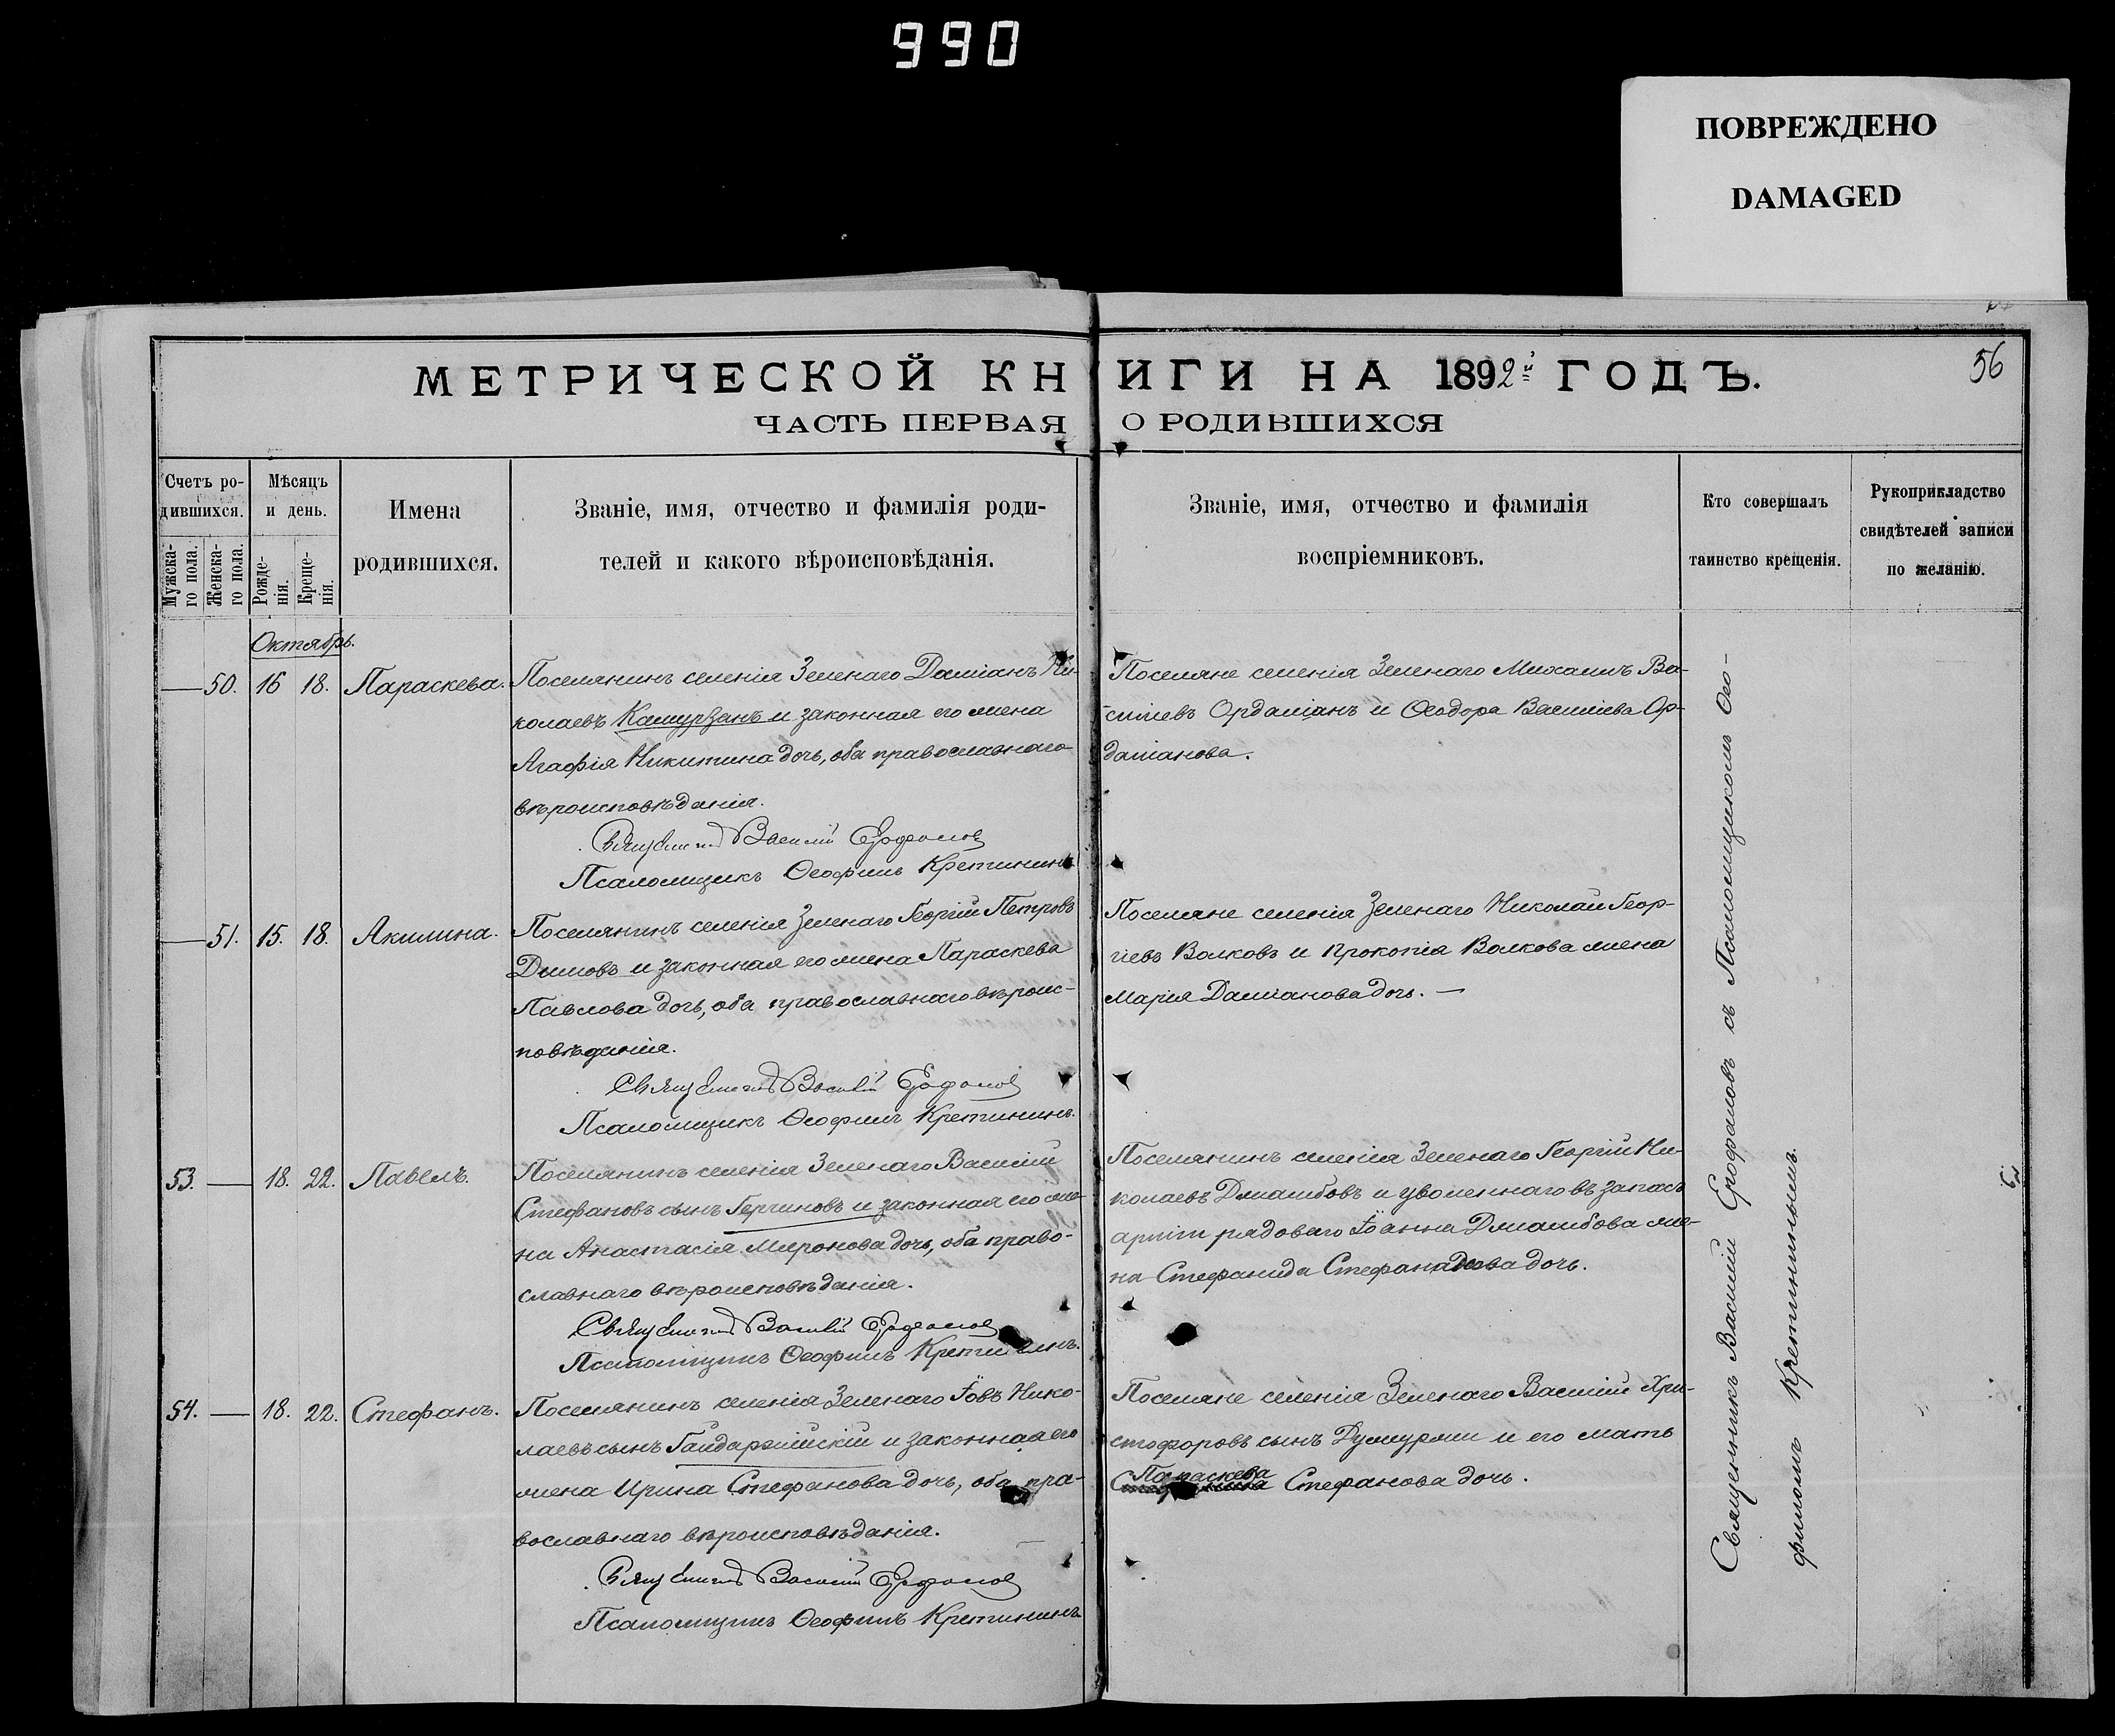 990
ПОВРЕЖДЕНО
DAMAGED
56
МЕТРИЧЕСКОЙ КНИГИ НА 1892й ГОДЪ.
ЧАСТЬ ПЕРВАЯ О РОДИВШИХСЯ
Счетъ ро-
дившихся.
Мужска-
го пола.
Женска-
го пола.
Мѣсяцъ
и день.
Рожде-
нія.
Креще-
нія.
Имена
родившихся.
Званіе, имя, отчество и фамилія роди-
телей и какого вѣроисповѣданія.
Званіе, имя, отчество и фамилія
воспріемниковъ.
Кто совершалъ
таинство крещенія.
Рукоприкладство
свидѣтелей записи
по желанію.
Октябрь.
— 50. 16 18. Параскева.
Поселянинъ селенія Зеленаго Даміанъ Ни-
колаевъ Кашурзанъ и законная его жена
Агафія Никитина дочь, оба православнаго
вѣроисповѣданія.
Священникъ Василій Ерофаловъ
Псаломщикъ Ѳеофилъ Кретининъ
Поселяне селенія Зеленаго Михаилъ Ва-
силіевъ Ордаміанъ и Ѳеодора Василіева Ор-
даміанова.
— 51. 15. 18. Акилина.
Поселянинъ селенія Зеленаго Георгій Петровъ
Димовъ и законная его жена Параскева
Павлова дочь, оба православнаго вѣроис-
повѣданія.
Священникъ Василій Ерофаловъ
Псаломщикъ Ѳеофилъ Кретининъ.
Поселяне селенія Зеленаго Николай Геор-
гіевъ Волковъ и Прокопія Волкова жена
Марія Даміанова дочь. —
53. — 18. 22. Павелъ.
Поселянинъ селенія Зеленаго Василій
Стефановъ сынъ Гергиновъ и законная его же-
на Анастасія Миронова дочь, оба право-
славнаго вѣроисповѣданія.
Священникъ Василій Ерофаловъ
Псаломщикъ Ѳеофилъ Кретининъ.
Поселянинъ селенія Зеленаго Георгій Ни-
колаевъ Дмамбовъ и уволеннаго въ запасъ
арміи рядоваго Іоанна Дмамбова же-
на Стефанида дочь.
54. — 18. 22. Стефанъ.
Поселянинъ селенія Зеленаго Іовъ Нико-
лаевъ сынъ Гайдаржийскій и законная его
жена Ирина Стефанова дочь, оба пра-
вославнаго вѣроисповѣданія.
Священникъ Василій Ерофаловъ
Псаломщикъ Ѳеофилъ Кретининъ
Поселяне селенія Зеленаго Василій Хри-
стофоровъ сынъ и его мать
Параскева Стефанова дочь.
Священникъ Василій Ерофаловъ съ Псаломщикомъ Ѳео-
филомъ Кретининымъ.